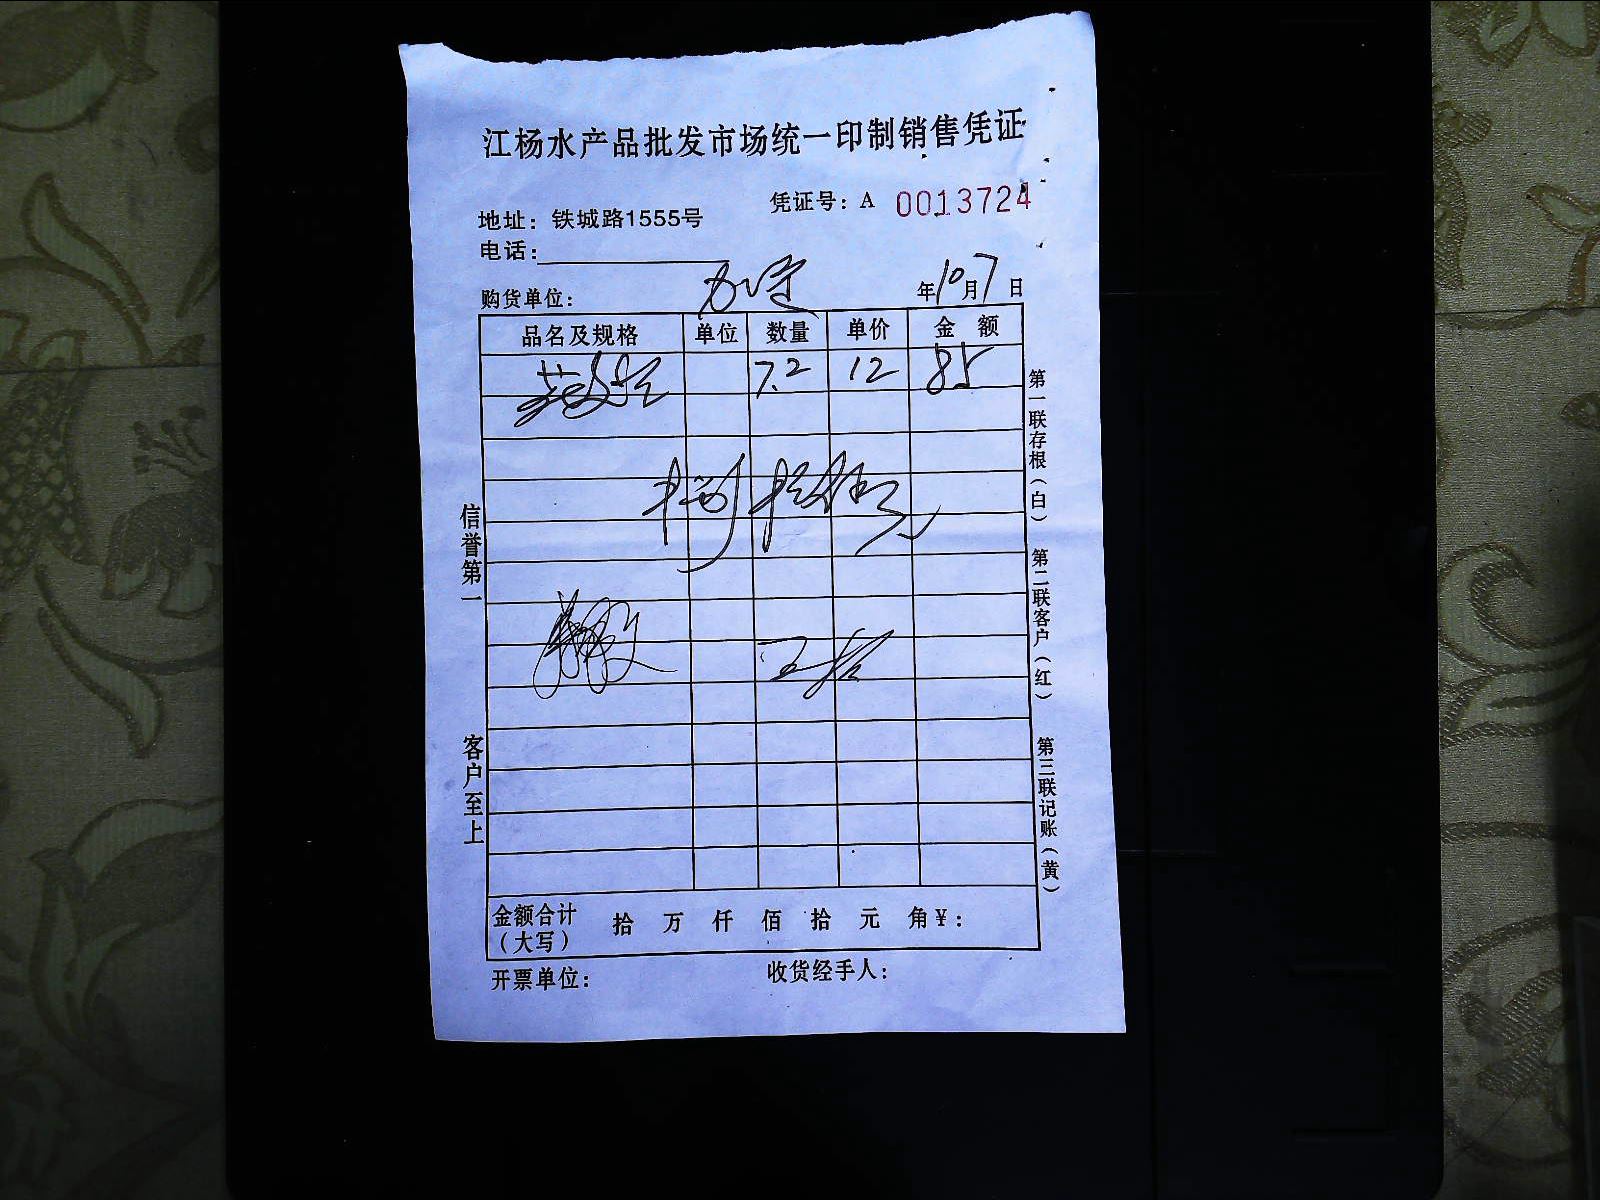 江杨水产品批发市场统一印制销售凭证
凭证号：A 0013724
地址：铁城路1555号
电话：
购货单位： 年10月7日
品名及规格 单位 数量 单价 金额
7.2 12 85
信誉第一
客户至上
第一联存根（白）
第二联客户（红）
第三联记账（黄）
金额合计（大写） 拾 万 仟 佰 拾 元 角￥：
开票单位： 收货经手人：